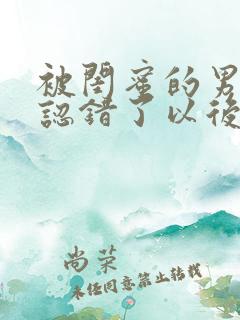 被閨蜜的男
認錯了以後
尚榮
未經同意禁止轉載